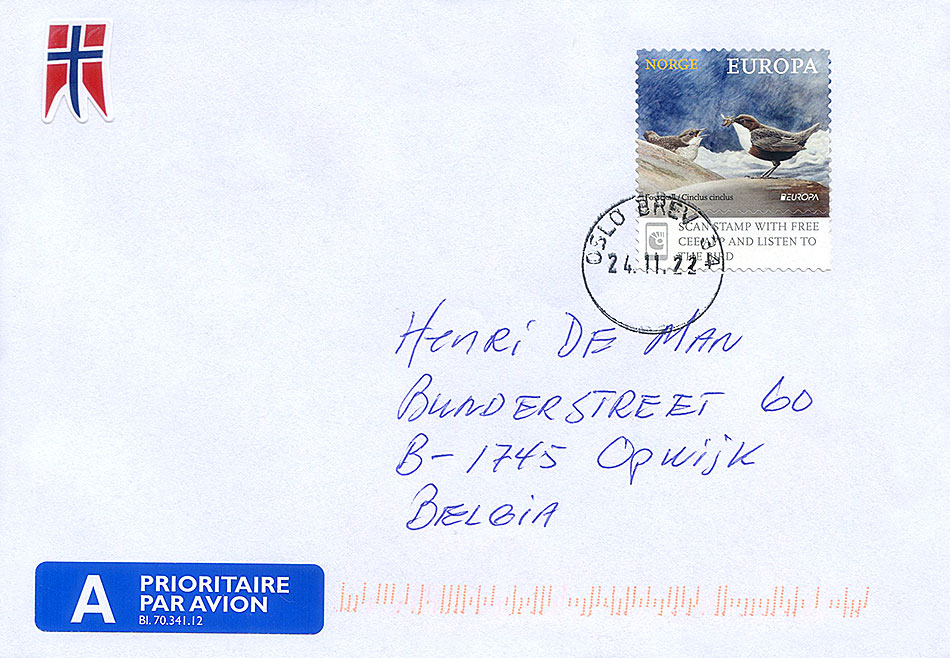 NORGE EUROPA
Fossekall / Cinclus cinclus EUROPA
SCAN STAMP WITH FREE
CEE APP AND LISTEN TO
THE BIRD
OSLO BREV 3A
24.11.22
Henri De Man
BUNDERSTREET 60
B-1745 Opwijk
BELGIA
A PRIORITAIRE
PAR AVION
Bl. 70.341.12